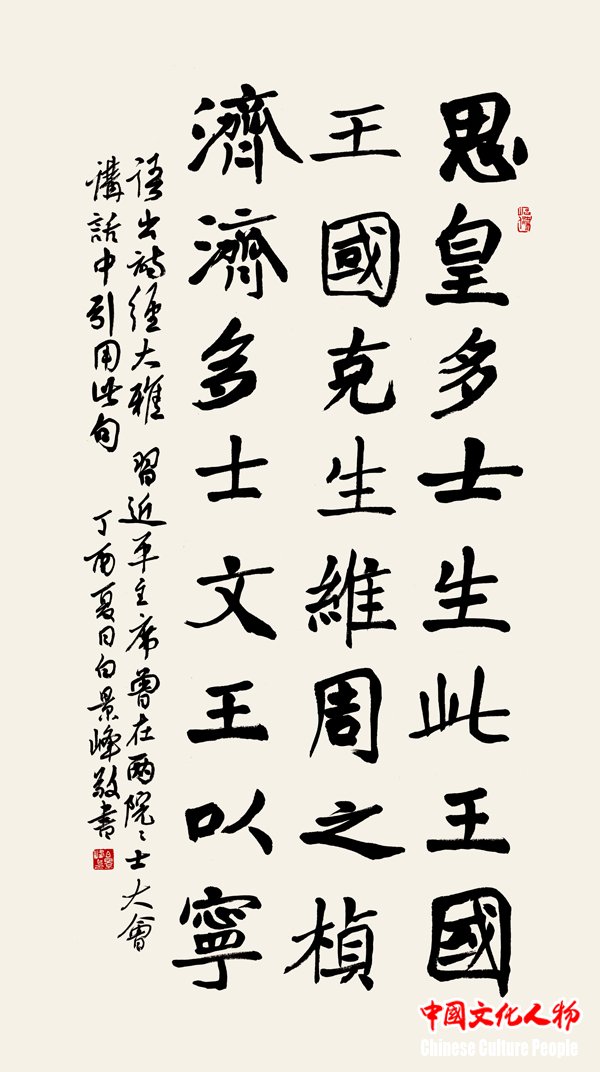 思皇多士生此王國
王國克生維周之楨
濟濟多士文王以寧
語出詩經大雅 習近平主席曾在兩院院士大會
講話中引用此句 丁酉夏日白景峰敬書
中國文化人物
Chinese Culture People